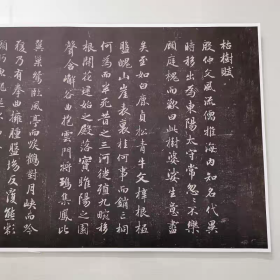 枯樹賦
殷仲文風流儒雅海内知名代異
時移出為東陽太守常忽忽不樂
顧庭槐而歎曰此樹婆娑生意盡
矣至如白鹿貞松青牛文梓根柢
盤魄山崖表裏桂何事而銷亡桐
何為而半死昔之三河徙殖九畹移
根開花建始之殿落實睢陽之園
聲含嶰谷曲抱雲門將雛集鳳比
翼巢鴛臨風亭而唳鶴對月峽而吟
猨乃有拳曲擁腫盤坳反覆熊彪